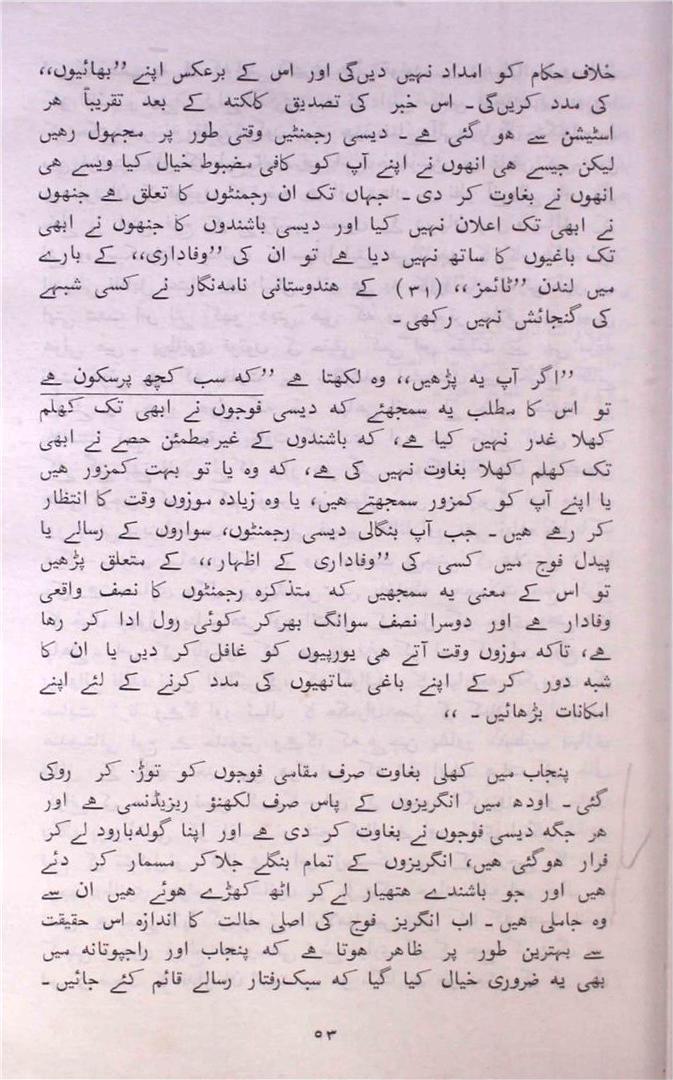 خلاف حکام کو امداد نہیں دیں‌گی اور اس کے برعکس اپنے ”بھائیوں،،
کی مدد کریں‌گی ۔ اس خبر کی تصدیق کلکتہ کے بعد تقریباً ھر
اسٹیشن سے ھو گئی ھے ۔ دیسی رجمنٹیں وقتی طور پر مجہول رھیں
لیکن جیسے ھی انھوں نے اپنے آپ کو کافی مضبوط خیال کیا ویسے ھی
انھوں نے بغاوت کر دی ۔ جہاں تک ان رجمنٹوں کا تعلق ھے جنھوں
نے ابھی تک اعلان نہیں کیا اور دیسی باشندوں کا جنھوں نے ابھی
تک باغیوں کا ساتھ نہیں دیا ھے تو ان کی ”وفاداری،، کے بارے
میں لندن ”ٹائمز،، (۳۱) کے ھندوستانی نامہ‌نگار نے کسی شبہے
کی گنجائش نہیں رکھی ۔
”اگر آپ یہ پڑھیں،، وہ لکھتا ھے ”کہ سب کچھ پرسکون ھے
تو اس کا مطلب یہ سمجھئے کہ دیسی فوجوں نے ابھی تک کھلم
کھلا غدر نہیں کیا ھے، کہ باشندوں کے غیرمطمئن حصے نے ابھی
تک کھلم کھلا بغاوت نہیں کی ھے، کہ وہ یا تو بہت کمزور ھیں
یا اپنے آپ کو کمزور سمجھتے ھیں، یا وہ زیادہ موزوں وقت کا انتظار
کر رھے ھیں ۔ جب آپ بنگالی دیسی رجمنٹوں، سواروں کے رسالے یا
پیدل فوج میں کسی کی ”وفاداری کے اظہار،، کے متعلق پڑھیں
تو اس کے معنی یہ سمجھیں کہ متذکرہ رجمنٹوں کا نصف واقعی
وفادار ھے اور دوسرا نصف سوانگ بھرکر کوئی رول ادا کر رھا
ھے، تاکہ موزوں وقت آتے ھی یورپیوں کو غافل کر دیں یا ان کا
شبہ دور کر کے اپنے باغی ساتھیوں کی مدد کرنے کے لئے اپنے
امکانات بڑھائیں ۔ ،،
پنجاب میں کھلی بغاوت صرف مقامی فوجوں کو توڑ کر روکی
گئی ۔ اودھ میں انگریزوں کے پاس صرف لکھنؤ ریزیڈنسی ھے اور
ھر جگہ دیسی فوجوں نے بغاوت کر دی ھے اور اپنا گولہ‌بارود لے‌کر
فرار ھوگئی ھیں، انگریزوں کے تمام بنگلے جلاکر مسمار کر دئے
ھیں اور جو باشندے ھتھیار لے‌کر اٹھ کھڑے ھوئے ھیں ان سے
وہ جاملی ھیں ۔ اب انگریز فوج کی اصلی حالت کا اندازہ اس حقیقت
سے بہترین طور پر ظاھر ھوتا ھے کہ پنجاب اور راجپوتانہ میں
بھی یہ ضروری خیال کیا گیا کہ سبک‌رفتار رسالے قائم کئے جائیں ۔
۵۳